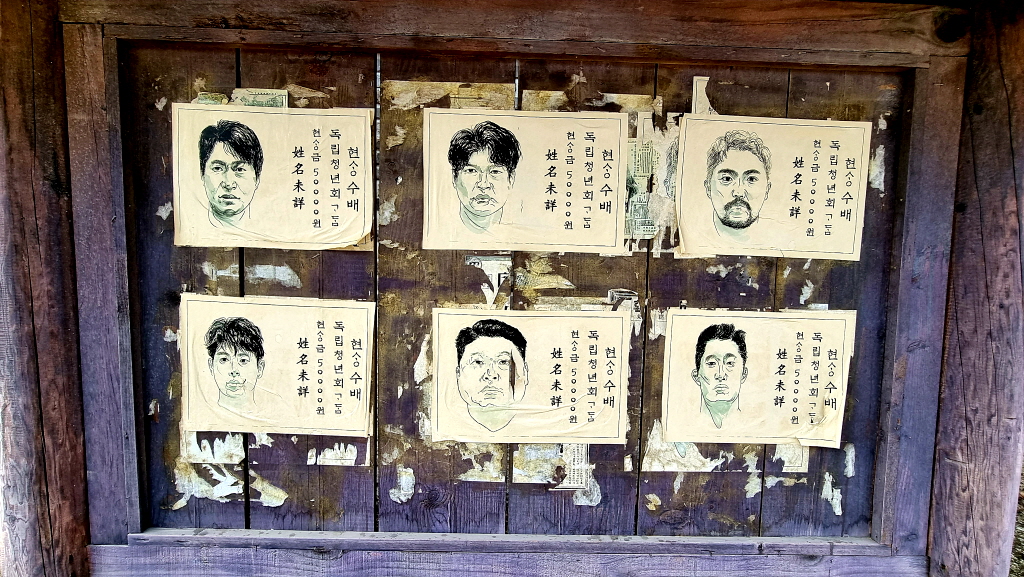 현상수배
독립청년회
현상금 50000원
姓名未詳
현상수배
독립청년회
현상금 50000원
姓名未詳
현상수배
독립청년회
현상금 50000원
姓名未詳
현상수배
독립청년회
현상금 50000원
姓名未詳
현상수배
독립청년회
현상금 50000원
姓名未詳
현상수배
독립청년회
현상금 50000원
姓名未詳